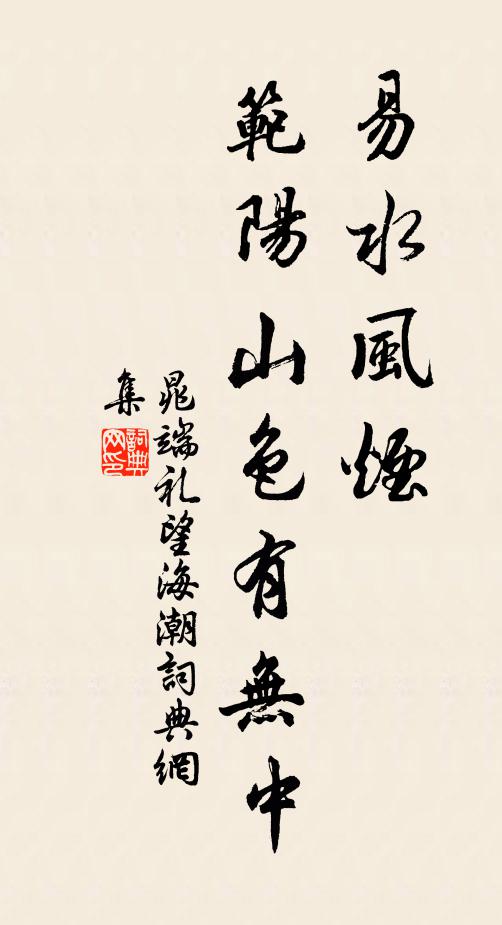 易水風煙
範陽山色有無中
晁端礼望海潮詞典網
集
詞典
网印